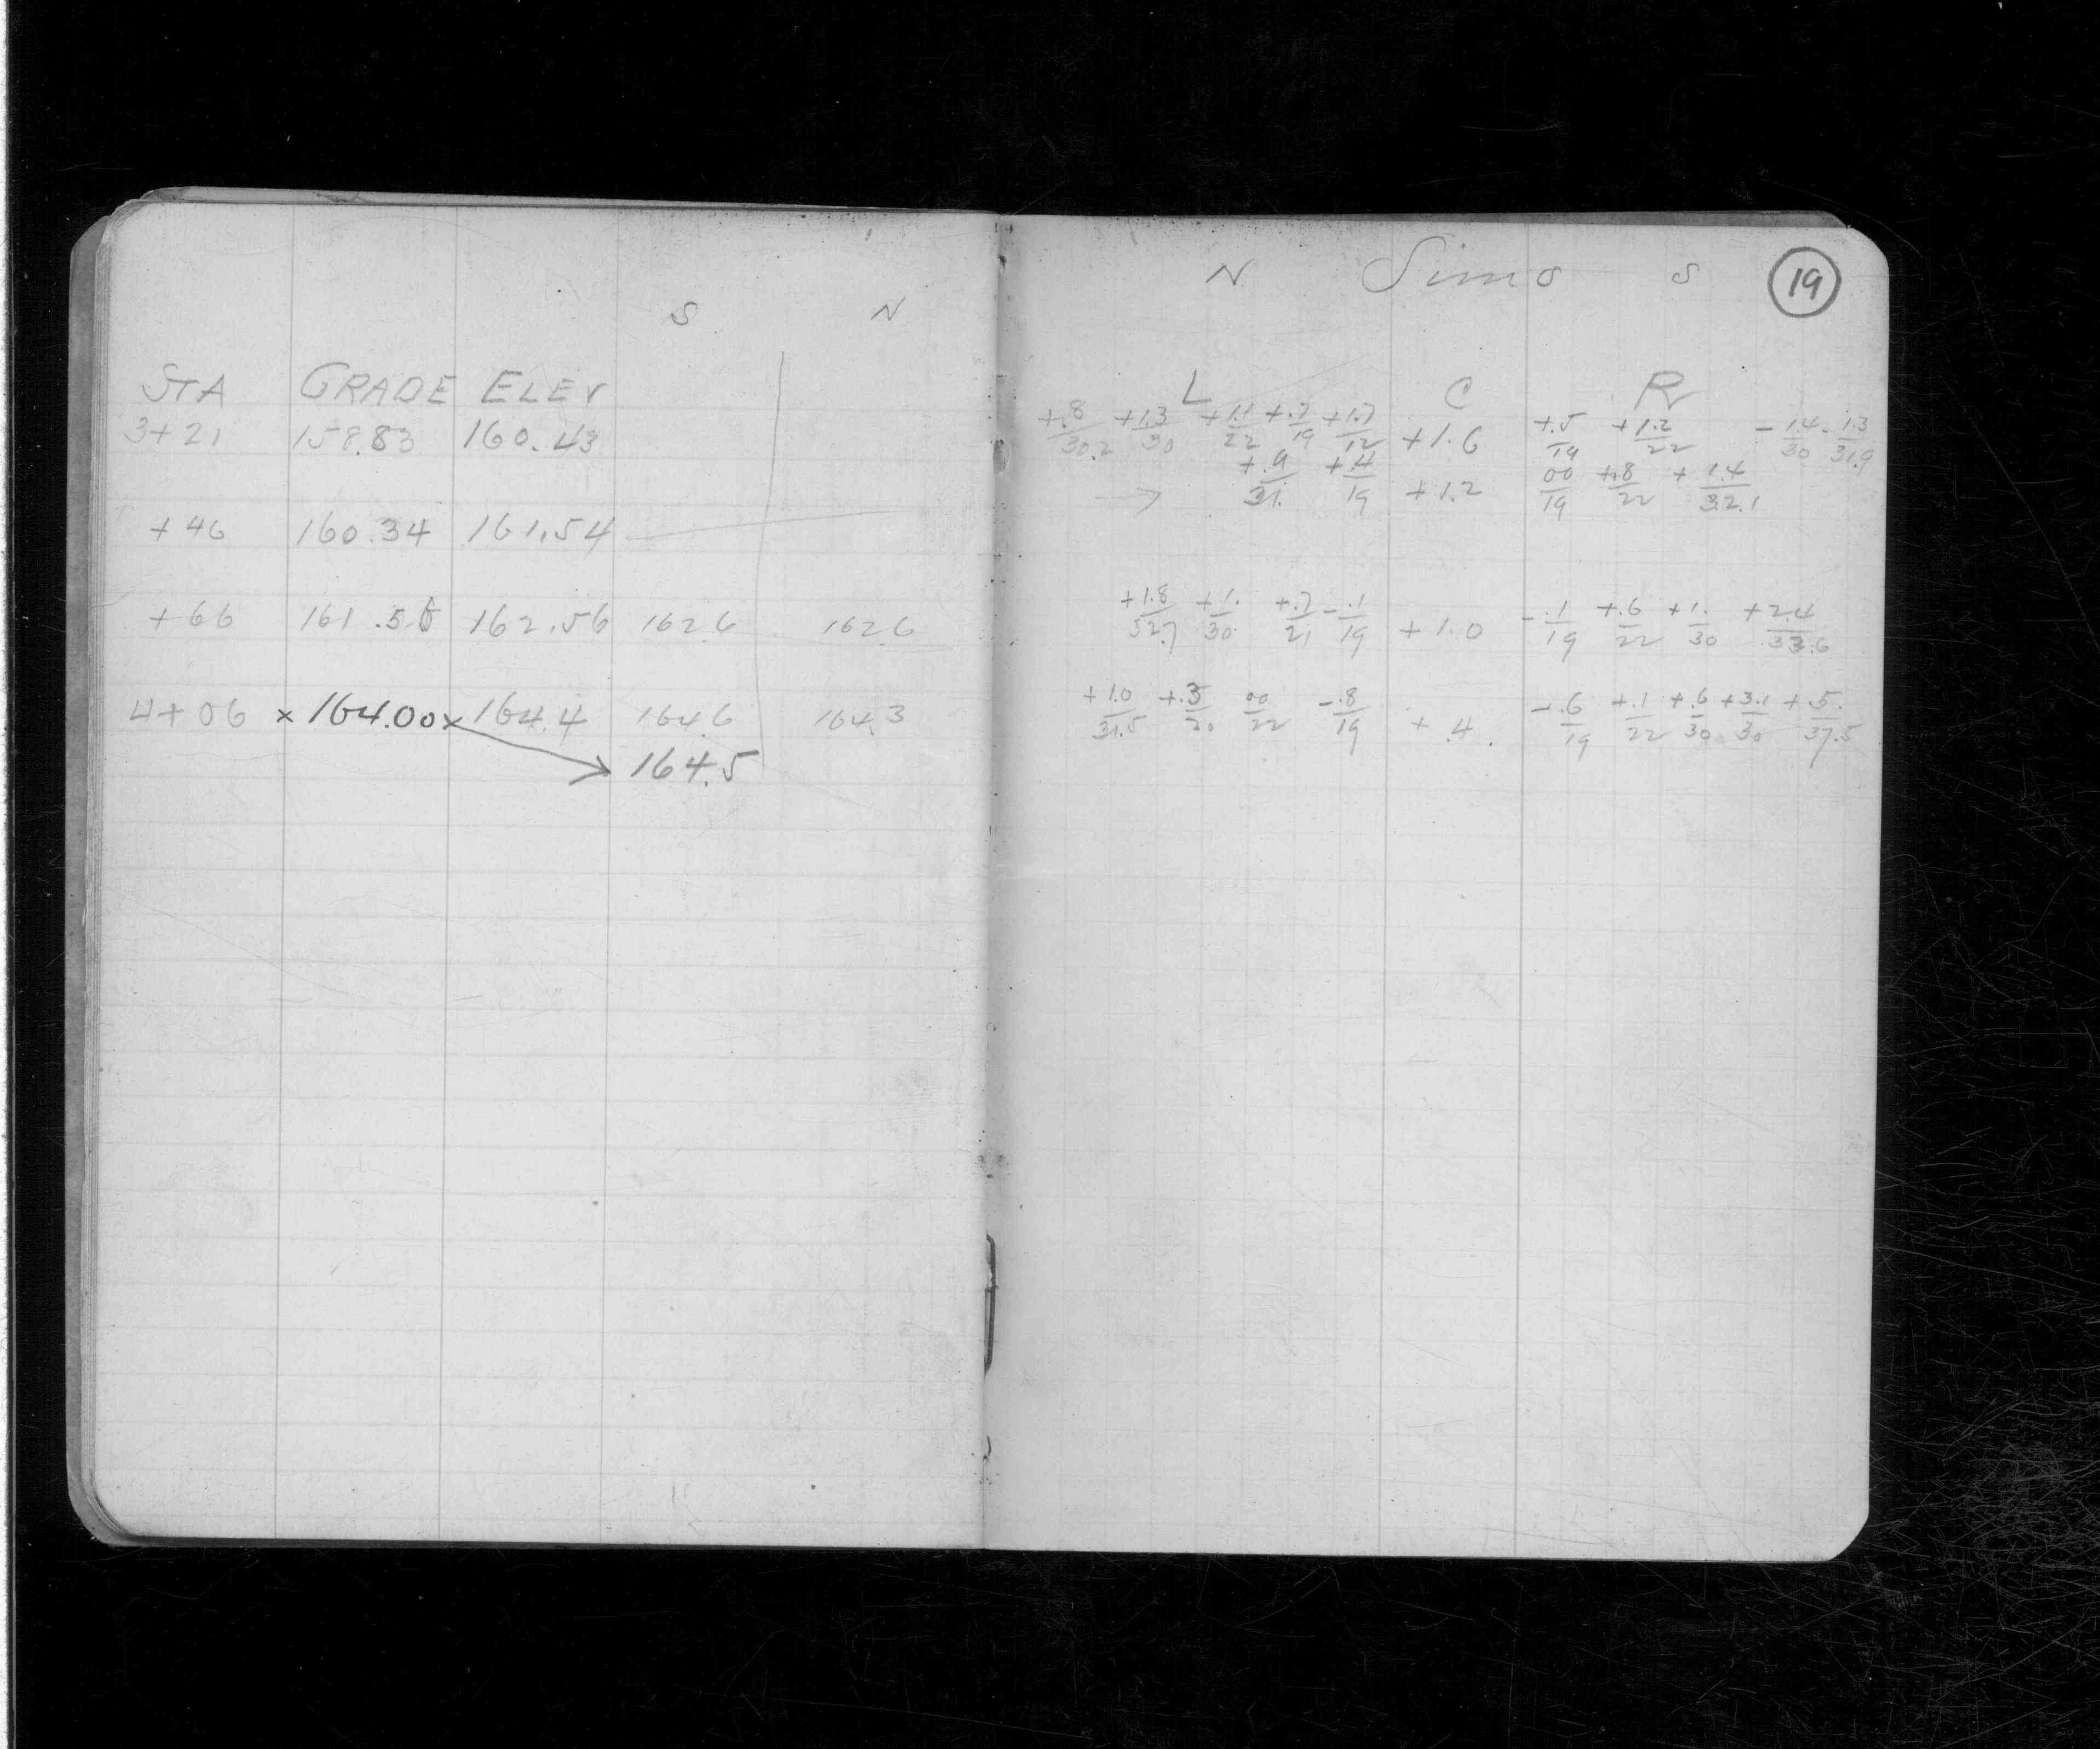 S N
STA GRADE ELEV
3+21 158.83 160.43
+46 160.34 161.54
+66 161.56 162.56 162.6 162.6
4+06 x 164.00 x 164.4 164.6 164.3
164.5
N Sims S 19
L C R
+.8/30.2 +1.3/30 +1.1/22 +.7/19 +1.7/12 +1.6 +.5/19 +1.2/22 -1.4/30 -1.3/31.9
+.9/31. +.4/19 +1.2 00/19 +.8/22 +1.4/32.1
+1.8/32.7 +1./30 +.7/21 -.1/19 +1.0 -.1/19 +.6/22 +1./30 +2.4/33.6
+1.0/31.5 +.3/20 00/22 -.8/19 +.4 -.6/19 +.1/22 +.6/30 +3.1/30 +5./37.5